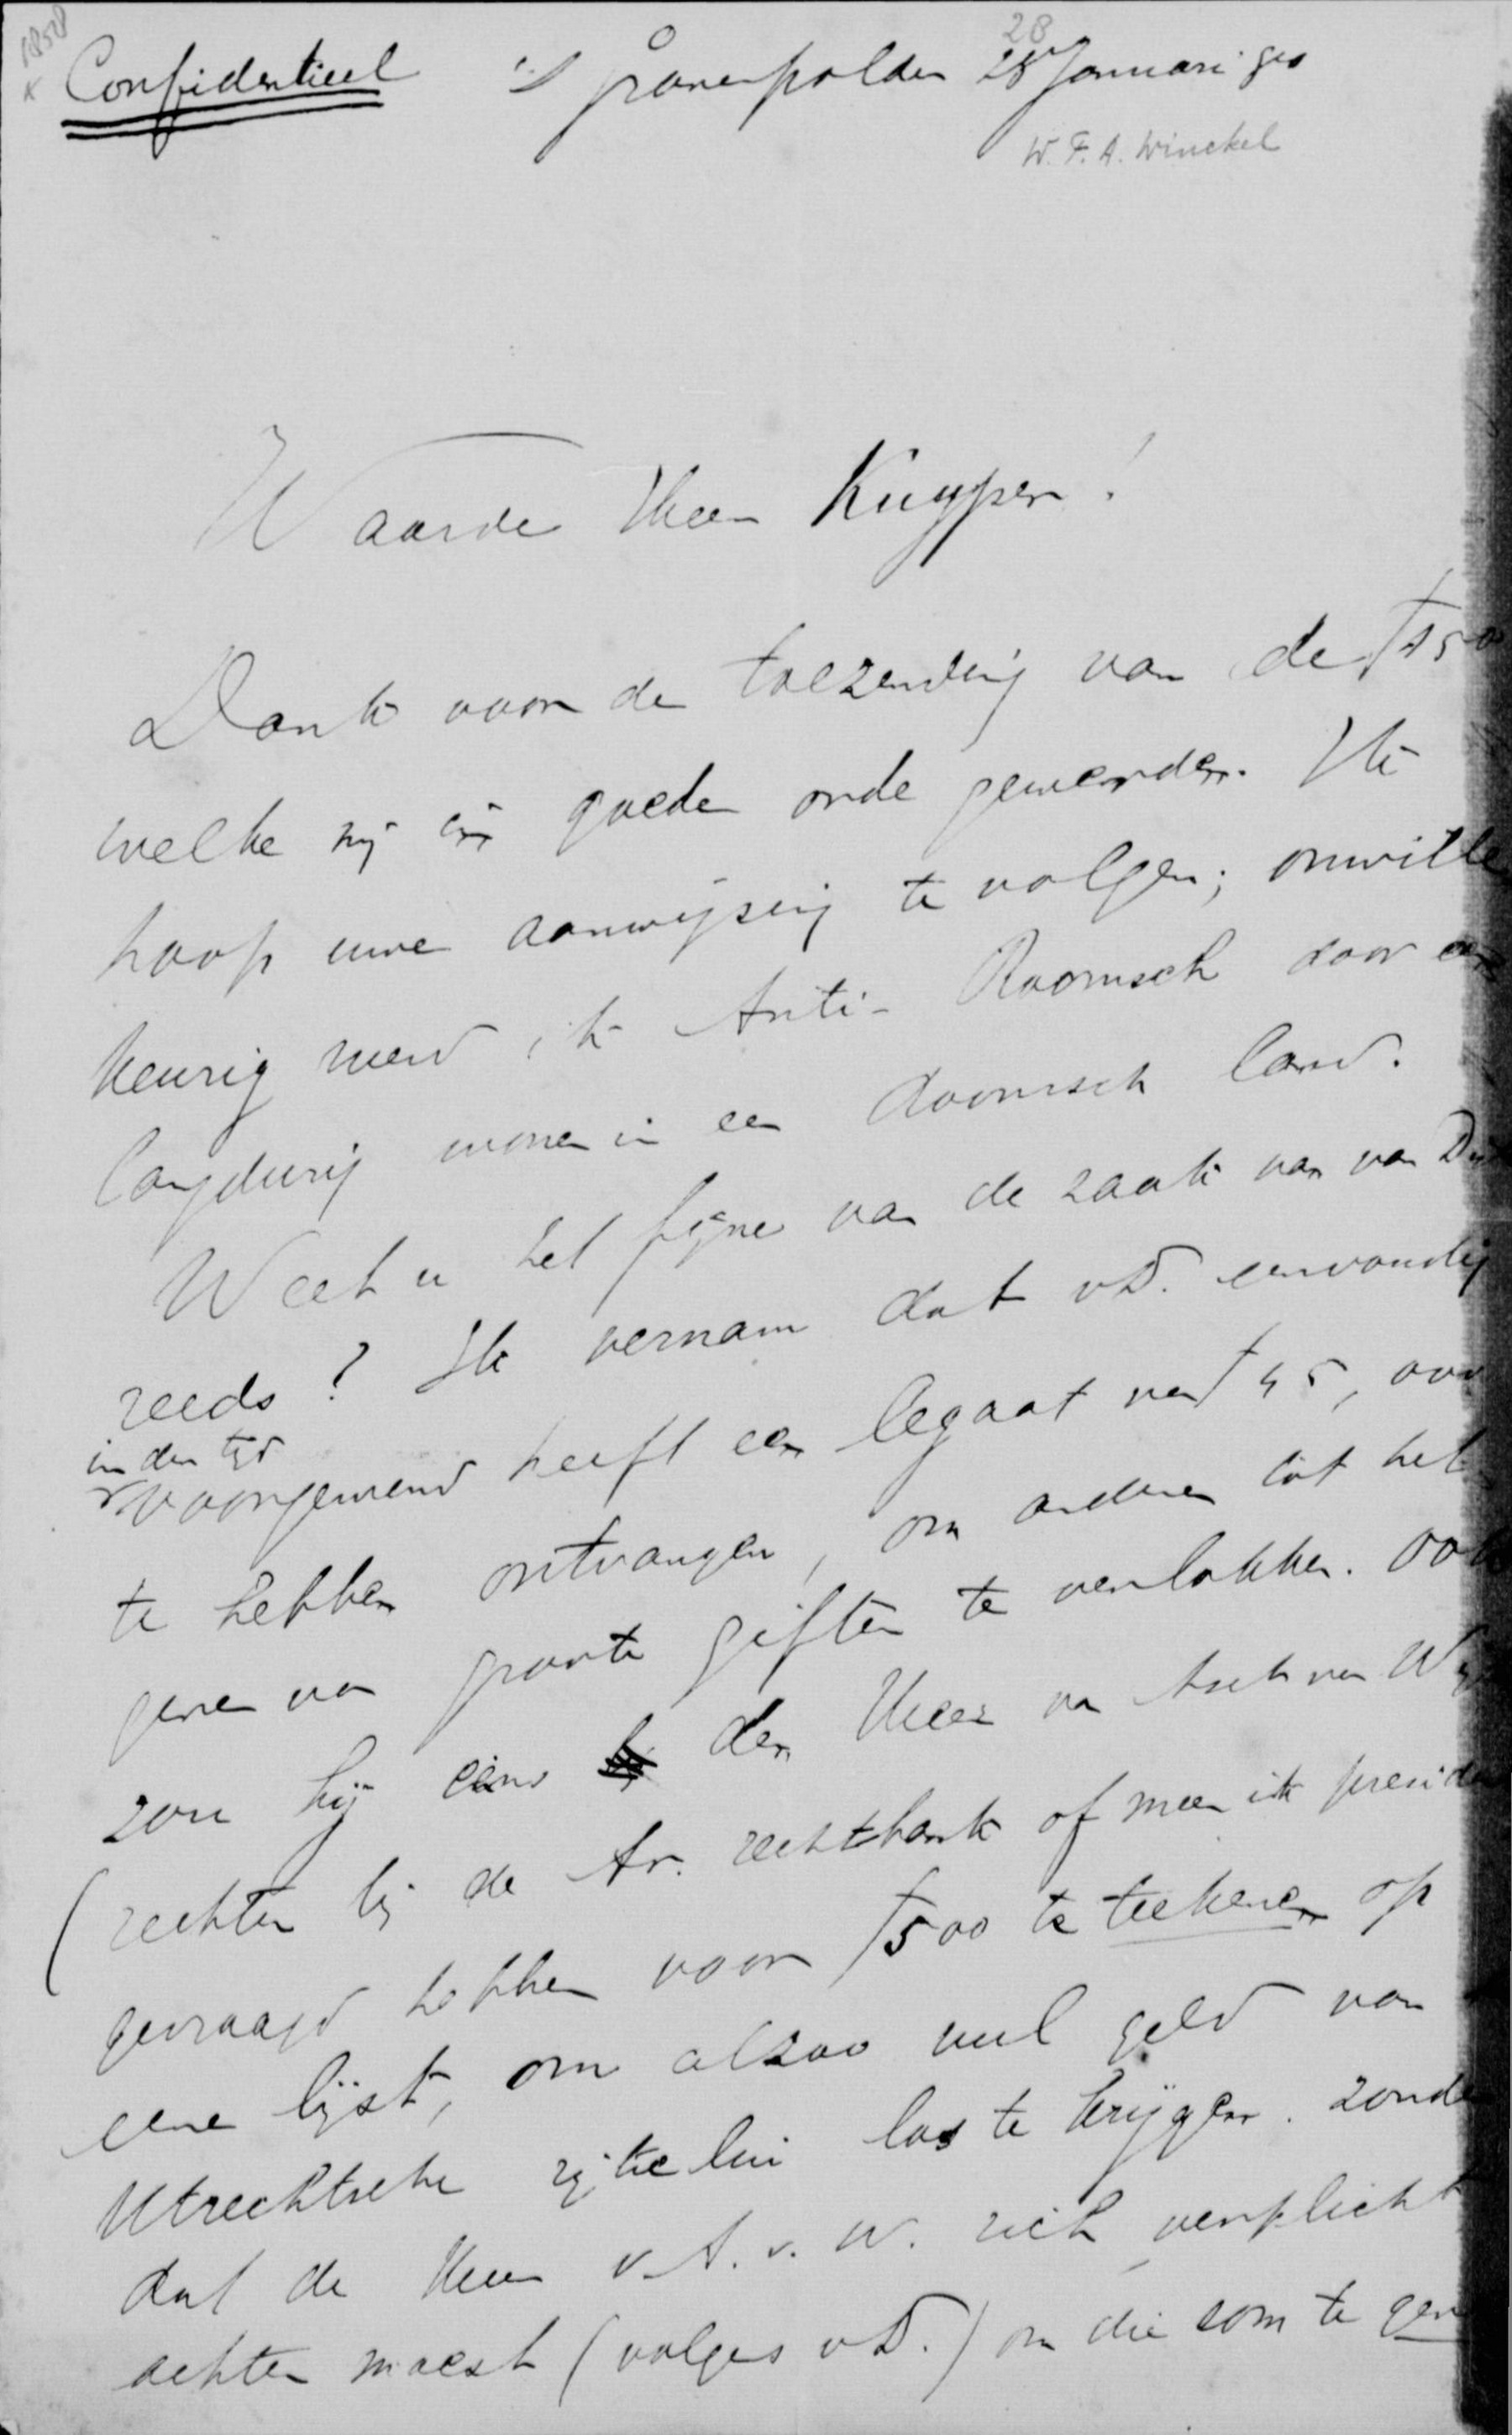 1858
x Confidentieel 's Gravenpolder 28 Januari 90
28
W. F. A. Winckel
Waarde Heer Kuyper!
Dank voor de toezending van de f 150
welke mij in goeden orde gewerden. Ik
hoop uwe aanwijzing te volgen; onwille
keurig werd ik Anti-Roomsch door een
langdurig wonen in een Roomsch land.
Weet u het fijne van de zaak van van D
reeds? Ik vernam dat v D. eenvoudig
in der tijd
voorgewend heeft een legaat van f 45,000
te hebben ontvangen, om anderen tot het
geven van groote giften te verlokken. Ook
zou hij eens den Heer van Asch van W
(rechter bij de Ar. rechtbank of meen ik preside
gevraagd hebben voor f 500 te teekenen op
eene lijst, om alzoo veel geld van
Utrechtsche rijke lui los te krijgen. zonde
dat de Heer v. A. v. W. zich verplicht
achten moest (volgens v D.) om die som te gev